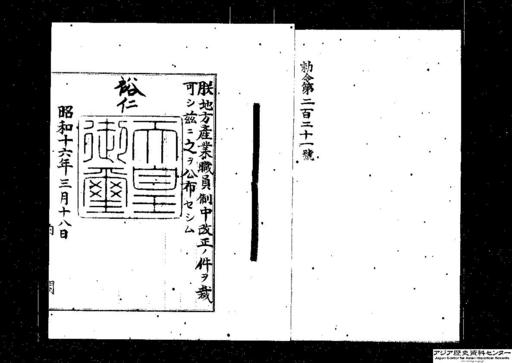 勅令第二百二十一號
朕地方產業職員制中改正ノ件ヲ裁
可シ茲ニ之ヲ公布セシム
裕仁
天皇御璽
昭和十六年三月十八日
内閣
アジア歴史資料センター
Japan Center for Asian Historical Records